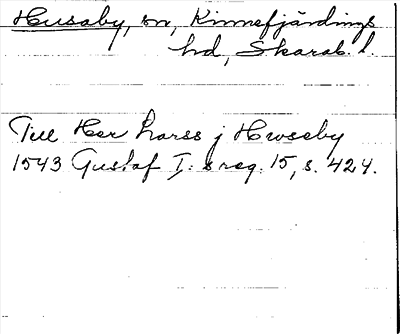 Husaby, sn, Kinnefjärdings
hd, Skarab. l.
Till Her Larss j Hwseby
1543 Gustaf I:s reg. 15, s. 424.